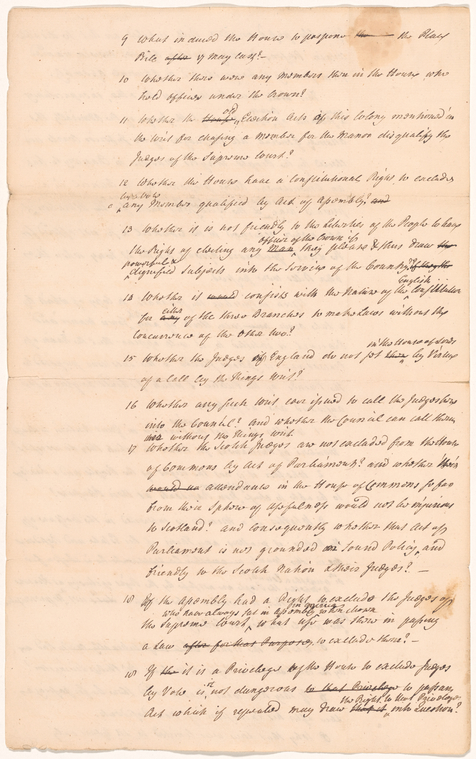 9 What induced the House to postpone the the Place
Bill after 17 may last?—
10 Whether there were any members then in the House who
held offices under the Crown?
11 Whether the Election Acts of this Colony mentioned in
the Writ for chusing a Member for the Manor disqualify the
Judges of the Supreme Court?
12 Whether the House have a Constitutional Right to exclude
any Member qualified by Act of Assembly? and
13 Whether it is not friendly to the Liberties of the People to have
officer of the Crown
the Right of electing any man they please & thus draw the
powerful &
dignified Subjects into the Service of the Country?
English
14 Whether it would consists with the Nature of the Constitution
either
for any of the three Branches to make Laws without the
Concurrence of the other two?
in the House of Lords
15 Whether the Judges of England do not set there by Virtue
of a Call by the Kings Writ?
16 Whether any such Writ ever issued to call the Judges here
into the Council? and whether the Council can call them
without the Kings Writ
17 Whether the Scotch Judges are not excluded from the House
of Commons by Act of Parliament? and whether their
would no attendance in the House of Commons so far
from their Sphere of Usefulness would not be injurious
to Scotland? and consequently whether that Act of
Parliament is not grounded on Sound Policy, and
friendly to the Scotch Nation & their Judges?—
18 If the Assembly had a Right to exclude the Judges of
who have always sat in Assembly when chosen
the Supreme Court, what use was there in passing
a Law after for that Purpose, to exclude them?—
If the it is a Priviledge of the House to exclude Judges
by Vote is it not dangerous to that Priviledge to pass an
the Right to that Priviledge
Act which if repealed may draw into Question?